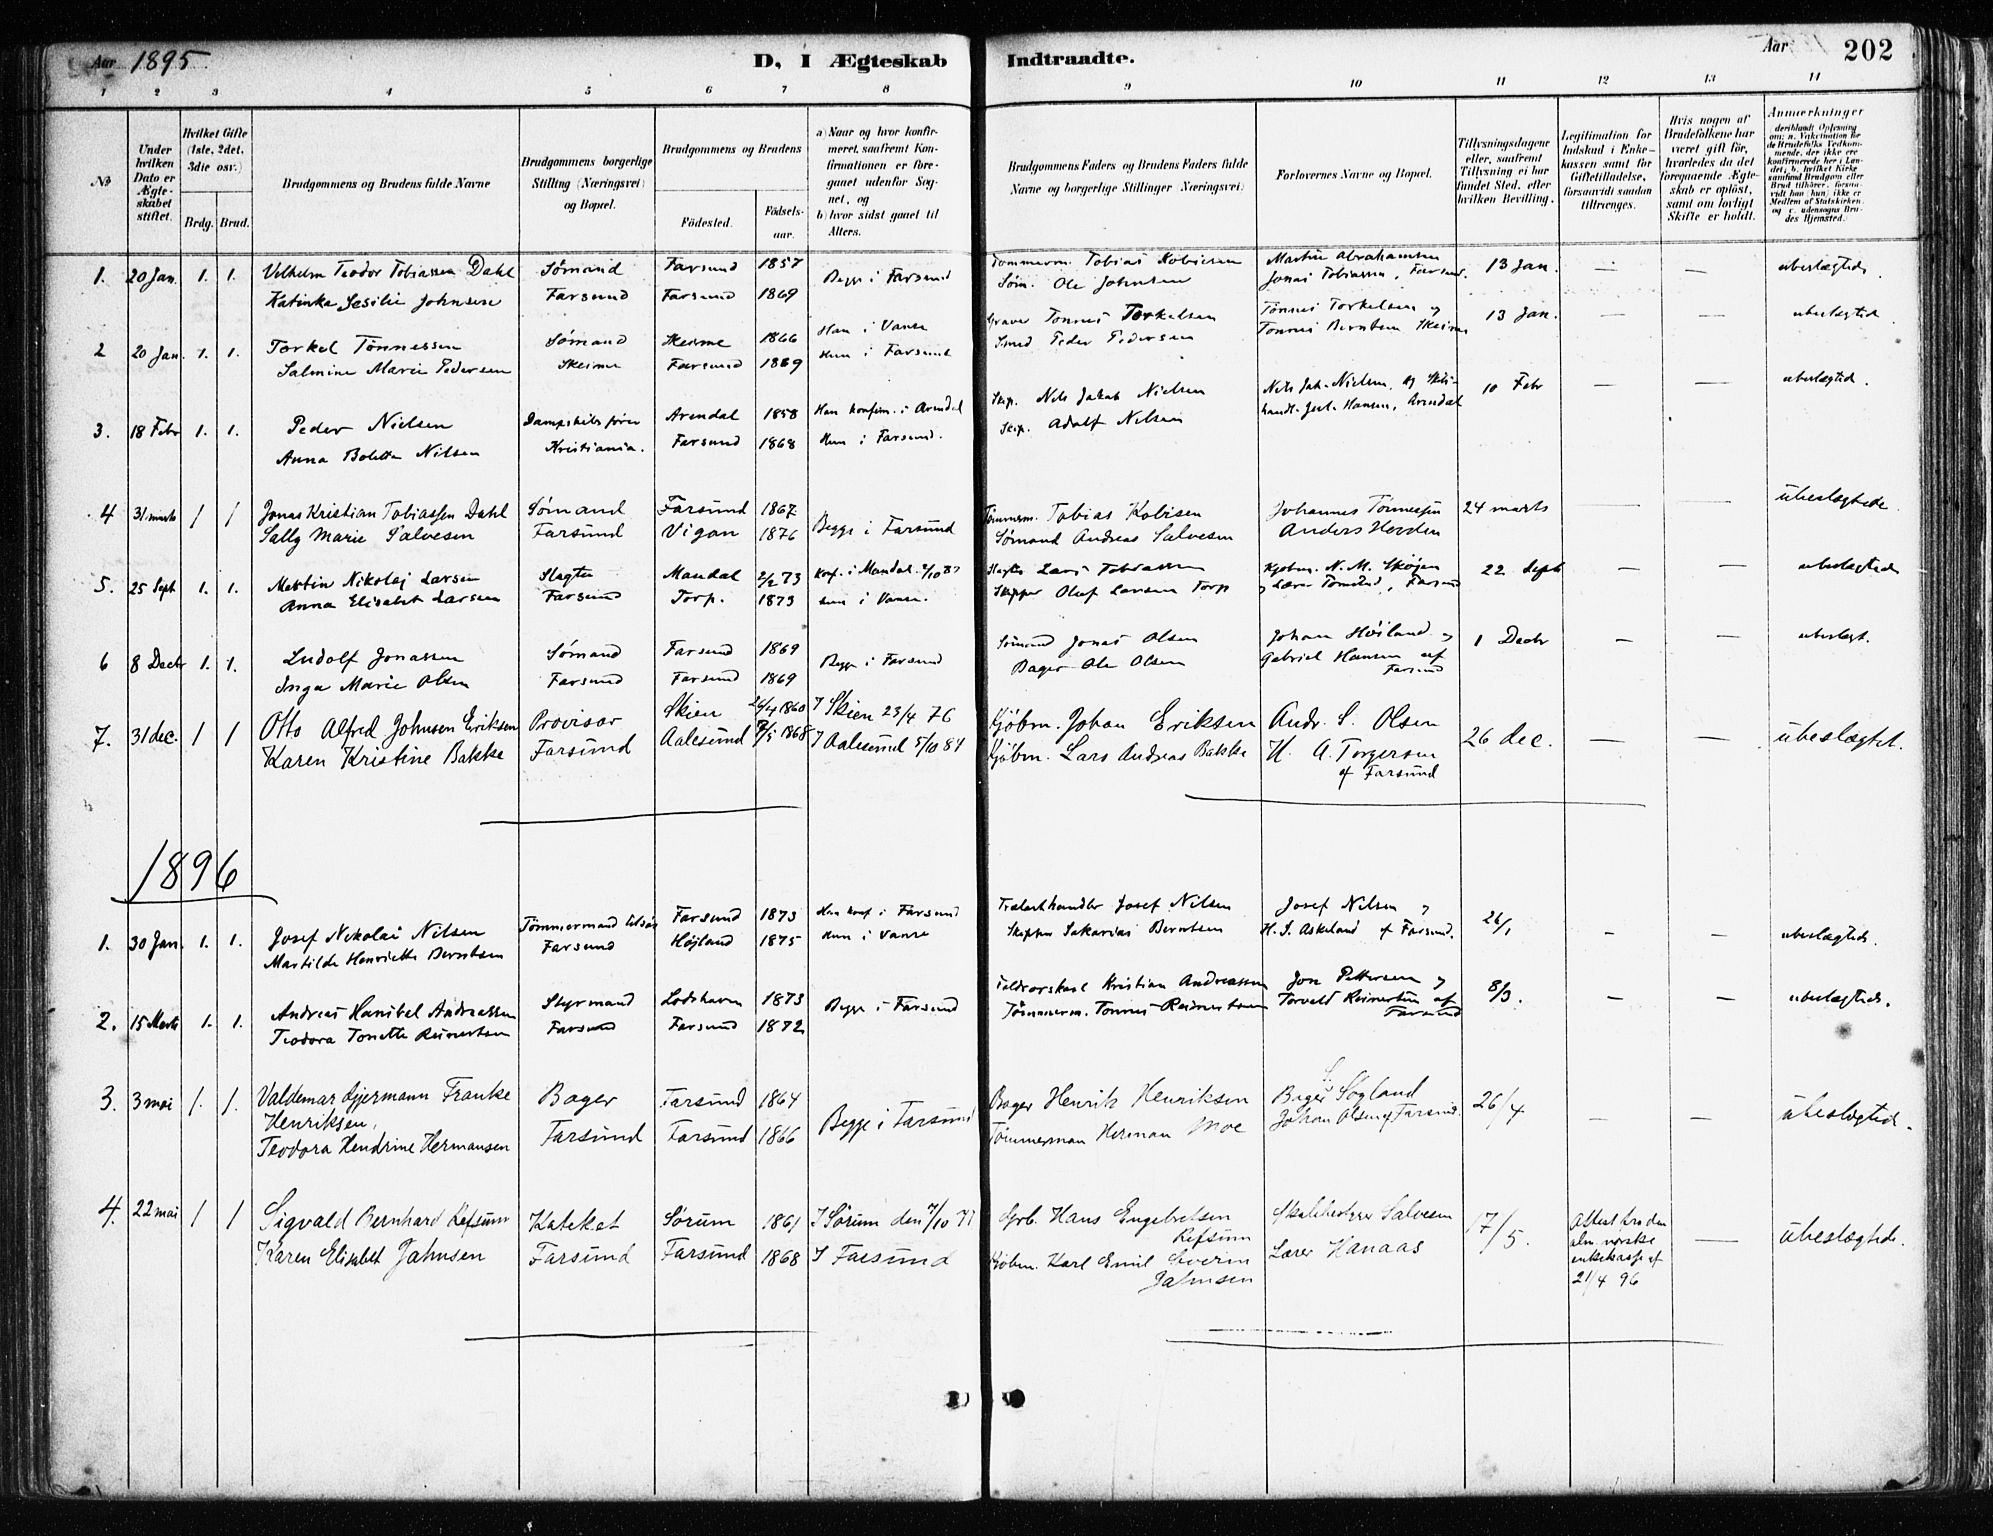 Aar 1895
D, I Ægteskab Indtraadte.
Aar
202
1 2 3 4 5 6 7 8 9 10 11 12 13 14
No
Under hvilken Dato er Ægteskabet stiftet.
Hvilket Gifte (1ste, 2det, 3die osv.)
Brdg. Brud.
Brudgommens og Brudens fulde Navne
Brudgommens borgerlige Stilling (Næringsvei) og Bopæl.
Brudgommens og Brudens
Födested.
Födselsaar.
a) Naar og hvor konfirmeret, saafremt Konfirmationen er foregaaet udenfor Sognet, og
b) hvor sidst gaaet til Alters.
Brudgommens Faders og Brudens Faders fulde Navne og borgerlige Stillinger (Næringsvei)
Forlovernes Navne og Bopæl.
Tillysningsdagene eller, saafremt Tillysning ei har fundet Sted, efter hvilken Bevilling.
Legitimation for Indskud i Enkekassen samt for Giftetilladelse, forsaavidt saadan tiltrænges.
Hvis nogen af Brudefolkene har været gift för, hvorledes da det foregaaende Ægteskab er oplöst, samt om lovligt Skifte er holdt.
Anmerkninger
deriblandt Oplysning om: a. Vakcination for de Brudefolks Vedkommende, der ikke ere konfirmerede her i Landet; b. hvilket Kirkesamfund Brudgom eller Brud tilhörer, forsaavidt han (hun) ikke er Medlem af Statskirken, og c. udensogns Brudes Hjemsted.
1. 20 Jan. 1. 1. Vilhelm Teodor Tobiassen Dahl Sømand Farsund 1857 Begge i Farsund Tømmerm. Tobias Kobisen Martin Abrahamsen 13 Jan. — — ubeslægtede.
Katinka Sesilie Johnsen Farsund Farsund 1869 Søm. Ole Johnsen Jonas Tobiassen, Farsund.
2 20 Jan. 1. 1. Torkel Tønnessen Sømand Skeime 1866 Han i Vanse Graver Tønnes Torkelsen Tønnes Torkelsen og 13 Jan. — — ubeslægtede.
Salmine Marie Pedersen Skeime Farsund 1869 Hun i Farsund Smed Peder Pedersen Tønnes Berntsen Skeime
3. 18 Febr 1. 1. Peder Nielsen Dampskibsfører Arendal 1858 Han konfirm. i Arendal Skip. Nils Jakob Nielsen Nils Jak. Nielsen, og 10 Febr — — ubeslægted.
Anna Boletta Nilsen Kristiania. Farsund 1868 Hun i Farsund. Skip. Adolf Nilsen Hansen, Arendal
4 31 marts 1 1 Jonas Kristian Tobiassen Dahl Sømand Farsund 1867 Begge i Farsund Tømmerm. Tobias Kobisen Johannes Tønnesen 24 marts — — ubeslægtede
Sally Marie Salvesen Farsund Vigan 1876 Sømand Andreas Salvesen Anders Hovden
5. 25 Sept 1. 1. Martin Nikolaj Larsen Slagter Mandal 2/2 73 konf. i Mandal 2/10 87 Slagter Lars Tobiassen Kjøbm. N. M. Skøjen 22 Sept — — ubeslægtede
Anna Elisabet Larsen Farsund Torp. 1873 hun i Vanse. Skipper Oluf Larsen Torp Lærer Tomstad, Farsund
6 8 Decbr 1. 1. Ludolf Jonassen Sømand Farsund 1869 Begge i Farsund Sømand Jonas Olsen Johan Høiland og 1 Decbr — — ubeslægt.
Inga Marie Olsen Farsund Farsund 1869 Bager Ole Olsen Gabriel Hansen af Farsund
7. 31 dec. 1 1 Otto Alfred Johnsen Eriksen Provisor Skien 26/4 1860 I Skien 23/4 76 Kjøbm. Johan Eriksen Andr. S. Olsen 26 dec. — — ubeslægtet.
Karen Kristine Bakke Farsund Aalesund 7/5 1868 I Aalesund 5/10 84 Kjøbm. Lars Andreas Bakke H. A. Torgersen af Farsund
1896
1. 30 Jan. 1. 1. Josef Nikolai Nilsen Tømmermand tilsøs Farsund 1873 Han konf i Farsund Trælasthandler Josef Nilsen Josef Nilsen og 26/1 — — ubeslægtede.
Martilde Henriette Berntsen Farsund Højland 1875 Hun i Vanse Skipper Sakarias Berntsen H. S. Askeland af Farsund.
2. 15 Marts 1. 1. Andreas Hanibal Andreassen Styrmand Lodshavn 1873 Begge i Farsund Toldrorskarl Kristian Andreassen Jon Pettersen og 8/3. — — ubeslægtede.
Teodora Tonette Reinertsen Farsund Farsund 1872 Tømmerm. Tønnes Reinertsen Torvald Reinertsen af Farsund
3. 3 mai 1. 1. Valdemar Gjermann Franke Bager Farsund 1864 Begge i Farsund Bager Henrik Henriksen Bager Søgland 26/4 — — ubeslægtede.
Henriksen,
Teodora Hendrine Hermansen Farsund Farsund 1866 Tømmerman Herman Moe Johan Olsen af Farsund.
4. 22 mai 1 1 Sigvald Bernhard Refsum Kateket Sørum 1861 I Sørum den 7/10 77 Grb. Hans Engebretsen Refsum Skolebestyrer Salvesen 17/5. Attest fra den alm norske enkekasse af 21/4 96 — ubeslægtede.
Karen Elisabet Jahnsen Farsund Farsund 1868 I Farsund Kjøbm. Karl Emil Severin Jahnsen Lærer Hanaas